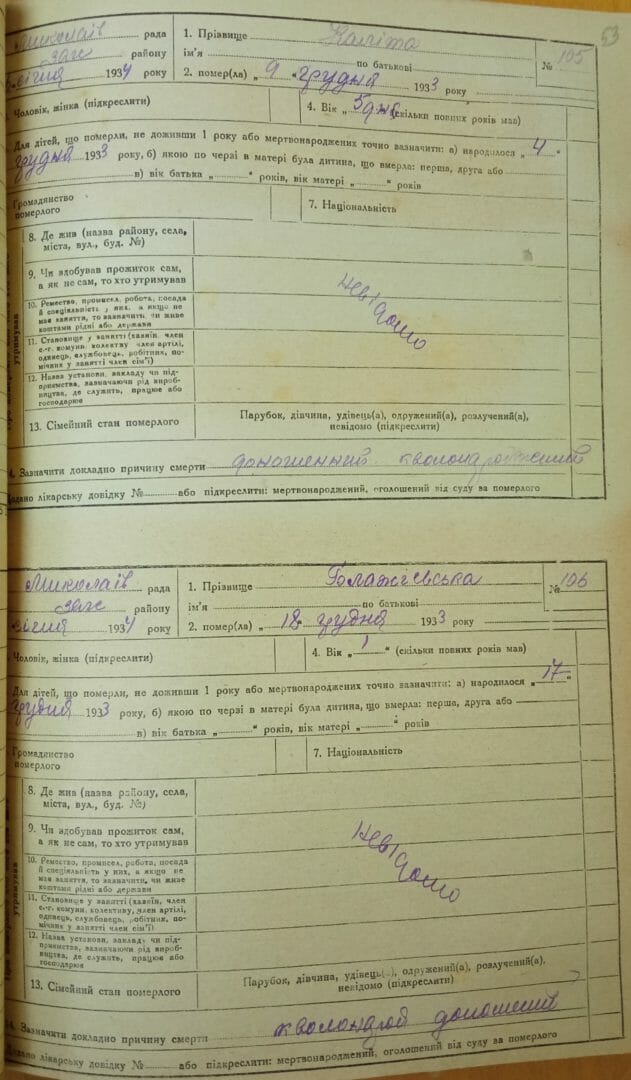 53
Миколаїв рада
заг району
січня 1934 року
1. Прізвище Каліта
ім'я по батькові
№ 105
2. помер(ла) „ 9 " грудня 1933 року
Чоловік, жінка (підкреслити)
4. Вік „ 5 дня (скільки повних років мав)
Для дітей, що померли, не доживши 1 року або мертвонароджених точно зазначити: а) народилося „ 4 "
грудня 1933 року, б) якою по черзі в матері була дитина, що вмерла: перша, друга або
в) вік батька „ " років, вік матері „ " років
Громадянство
померлого
7. Національність
8. Де жив (назва району, села,
міста, вул., буд. №)
9. Чи здобував прожиток сам,
а як не сам, то хто утримував
10. Ремество, промисел, робота, посада
й спеціяльність у них, а якщо не
мав заняття, то зазначить чи живе
коштами рідні або держави
11. Становище у занятті (хазяїн, член
с.-г. комуни, колективу, член артілі,
одинець, службовець, робітник, по-
мічник у занятті член сім'ї)
12. Назва установи, закладу чи під-
приємства, зазначаючи рід вироб-
ництва, де служить, працює або
господарює
утримував
Невідомо
13. Сімейний стан померлого
Парубок, дівчина, удівець(а), одружений(а), розлучений(а),
невідомо (підкреслити)
Зазначити докладно причину смерти доношенний кволонароджений
Додано лікарську довідку № або підкреслити: мертвонароджений, оголошений від суду за померлого
Миколаїв рада
заг району
січня 1934 року
1. Прізвище
ім'я по батькові
№ 106
2. помер(ла) „ 18 " грудня 1933 року
Чоловік, жінка (підкреслити)
4. Вік „ 1 " (скільки повних років мав)
Для дітей, що померли, не доживши 1 року або мертвонароджених точно зазначити: а) народилося „ 17 "
грудня 1933 року, б) якою по черзі в матері була дитина, що вмерла: перша, друга або
в) вік батька „ " років, вік матері „ " років
Громадянство
померлого
7. Національність
8. Де жив (назва району, села,
міста, вул., буд. №)
9. Чи здобував прожиток сам,
а як не сам, то хто утримував
10. Ремество, промисел, робота, посада
й спеціяльність у них, а якщо не
мав заняття, то зазначити, чи живе
коштами рідні або держави
11. Становище у занятті (хазяїн, член
с.-г. комуни, колективу, член артілі,
одинець, службовець, робітник, по-
мічник у занятті член сім'ї)
12. Назва установи, закладу чи під-
приємства, зазначаючи рід вироб-
ництва, де служить, працює або
господарює
утримував
Невідомо
13. Сімейний стан померлого
Парубок, дівчина, удівець(а), одружений(а), розлучений(а),
невідомо (підкреслити)
14. Зазначити докладно причину смерти доношений
Додано лікарську довідку № або підкреслити: мертвонароджений, оголошений від суду за померлого